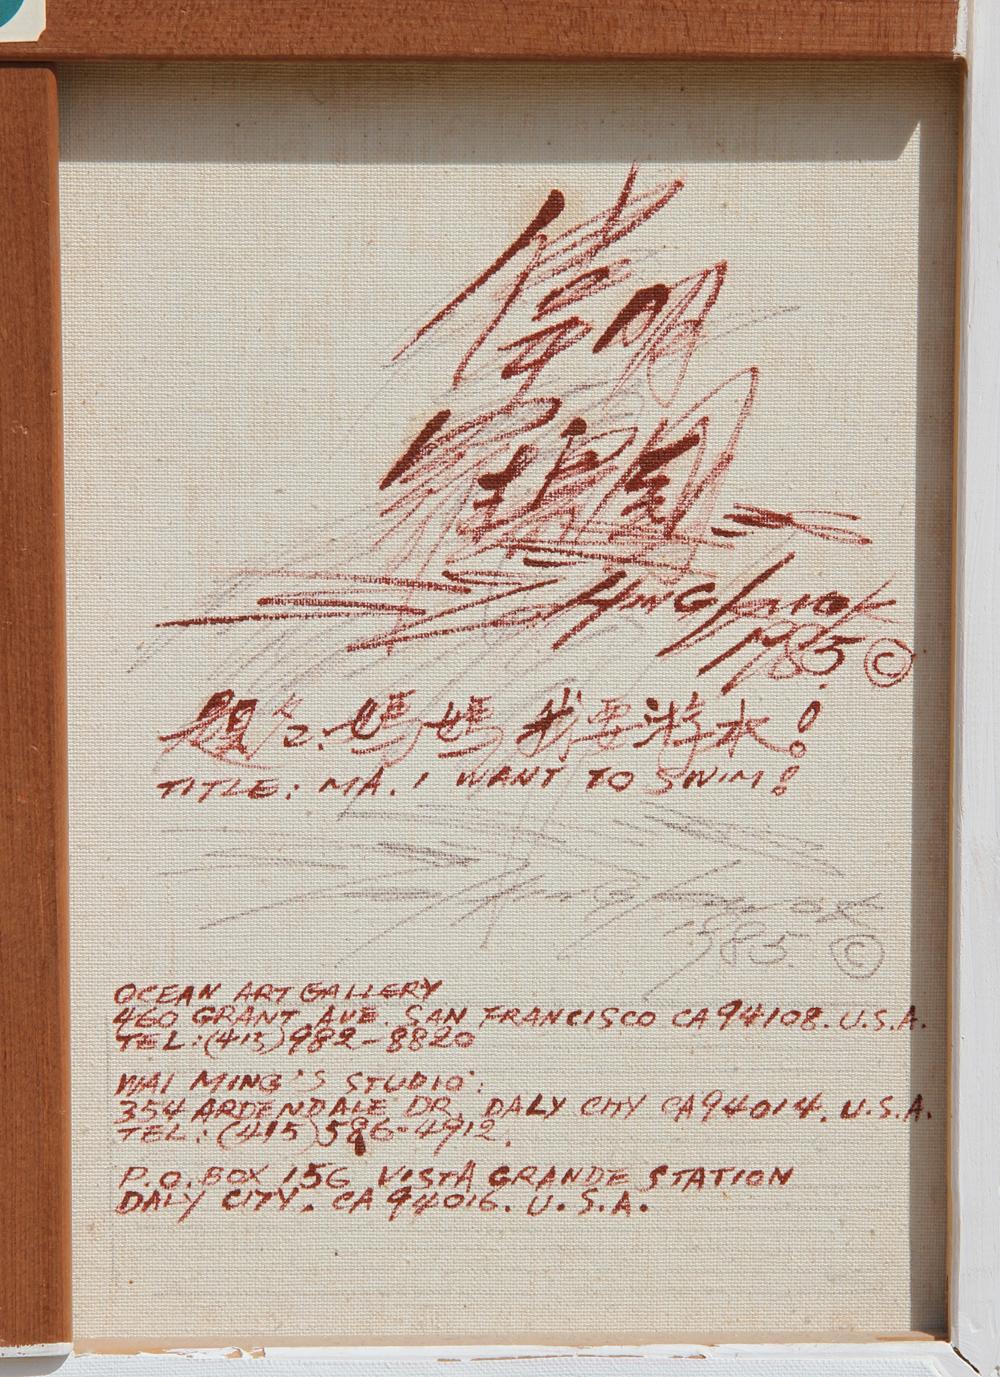 Ming Kwok
1985 ©
題名: 媽媽 我要游水!
TITLE: MA. I WANT TO SWIM!
Ming Kwok
1985. ©
OCEAN ART GALLERY
460 GRANT AVE. SAN FRANCISCO CA 94108. U.S.A.
TEL: (415) 982-8820
WAI MING'S STUDIO:
354 ARDENDALE DR, DALY CITY CA 94014. U.S.A.
TEL: (415) 586-4912.
P.O. BOX 156 VISTA GRANDE STATION
DALY CITY. CA 94016. U.S.A.